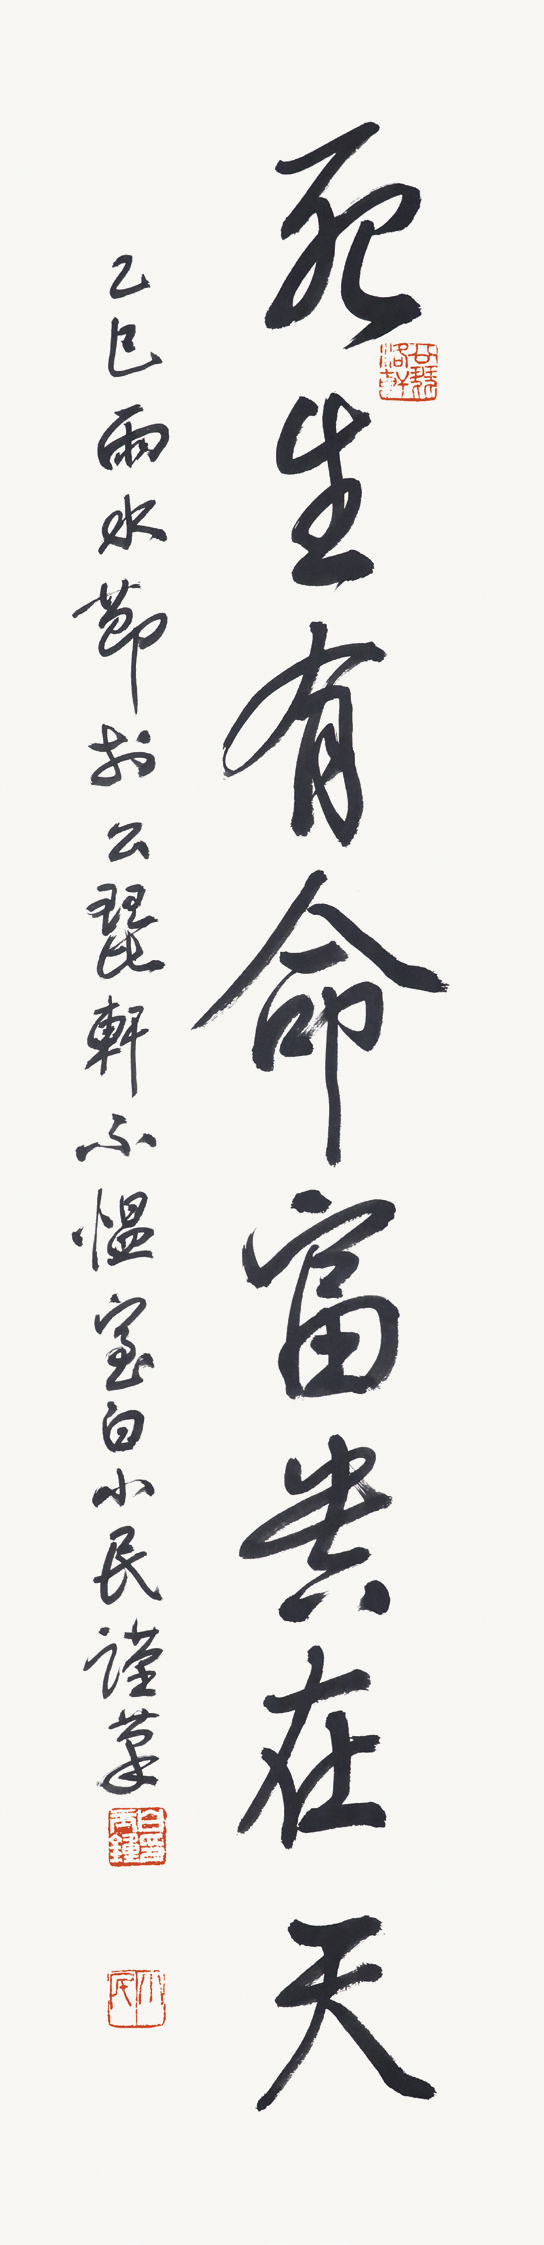 死生有命富貴在天
乙巳雨水節於公琵軒不愠室白小民謹筆